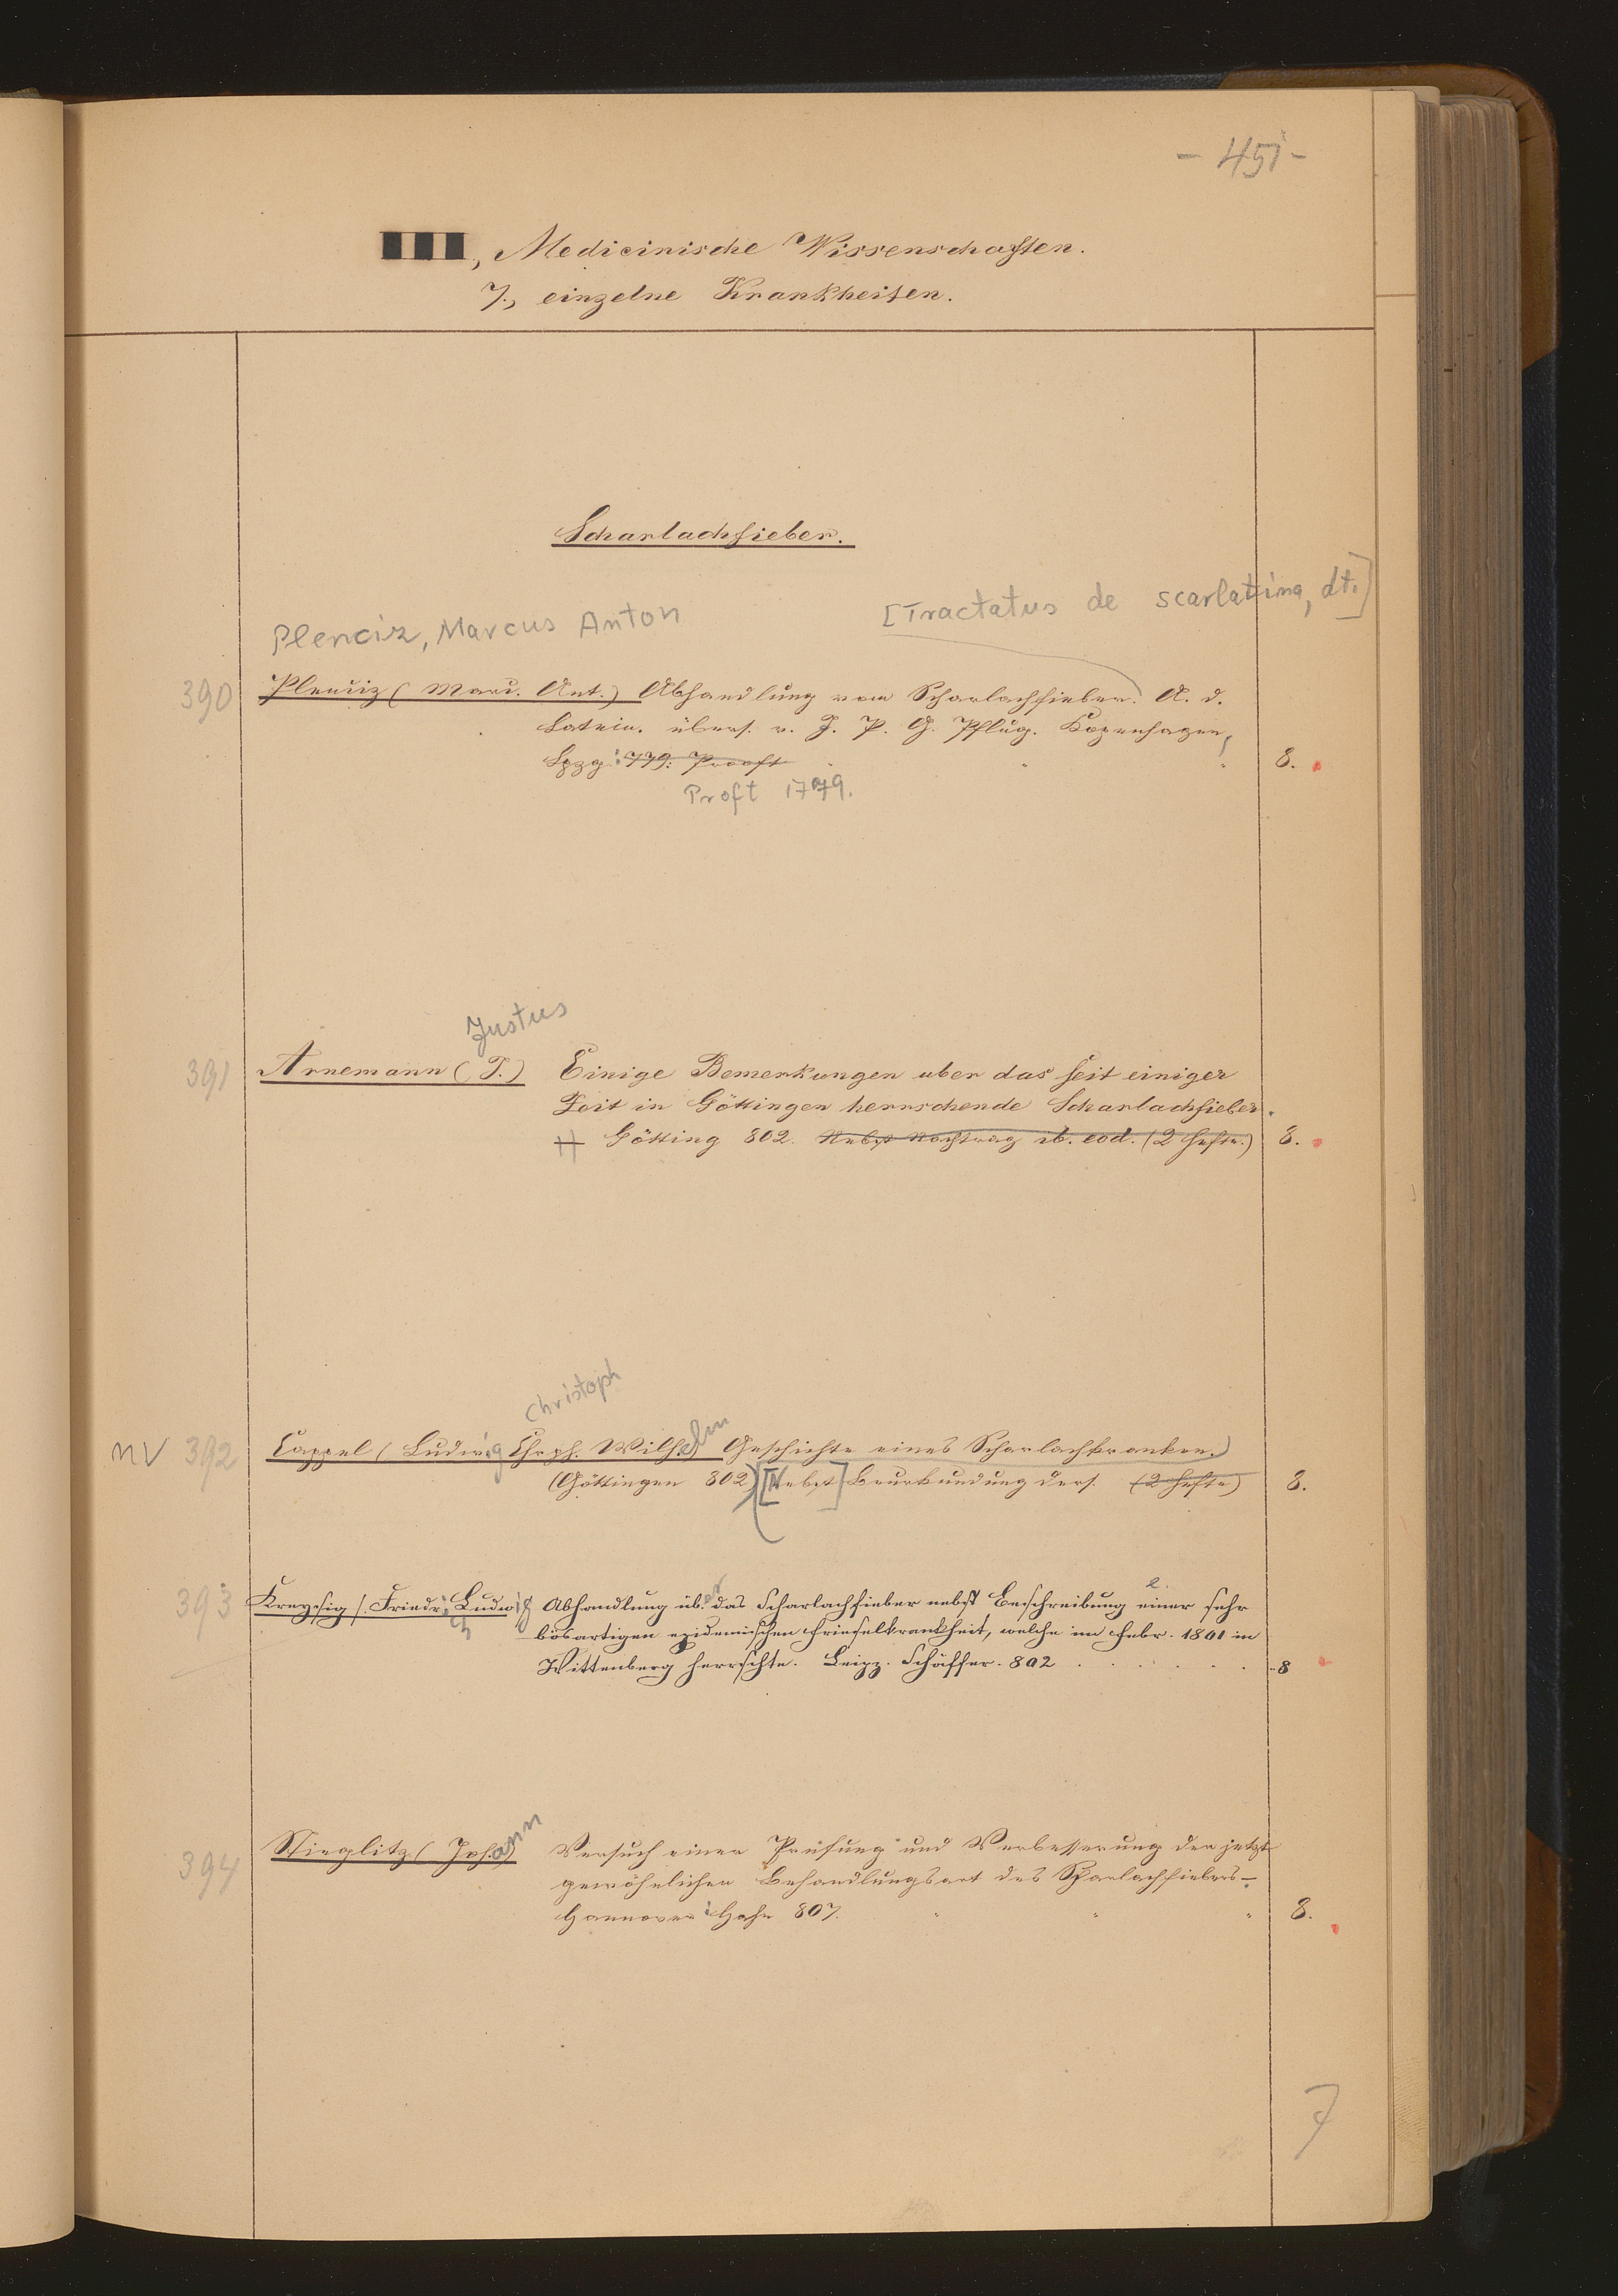 - 451 -
III, Medicinische Wissenschaften.
7., einzelne Krankheiten.
Scharlachfieber.
Plenciz, Marcus Anton [Tractatus de scarlatina, dt.]
390 Plenciz (Marc. Ant.) Abhandlung vom Scharlachfieber. A. d.
Latein. übers. v. J. P. G. Pflug. Kopenhagen,
Lpzg: 779: Prooft 8.
Proft 1779.
Justus
391 Arnemann (J.) Einige Bemerkungen uber das seit einiger
Zeit in Göttingen herrschende Scharlachfieber.
Götting 802. Nebst Nachtrag ib. eod. (2 Hefte.) 8.
Christoph
NV 392 Cappel (Ludwig Chrph. Wilhelm) Geschichte eines Scharlachkranken.
(Göttingen 802) [Nebst] Beurkundung ders. (2 Hefte) 8.
393 Kreysig (Friedrich Ludwig Abhandlung über das Scharlachfieber nebst Beschreibung einer sehr
bösartigen epidemischen Frieselkrankheit, welche im Febr. 1801 in
Wittenberg herrschte. Leipz. Schäffer. 802 8
394 Stieglitz (Johann) Versuch einer Prüfung und Verbesserung der jetzt
gewöhnlichen Behandlungsart des Scharlachfiebers.
Hannover: Hahn 807. 8.
7